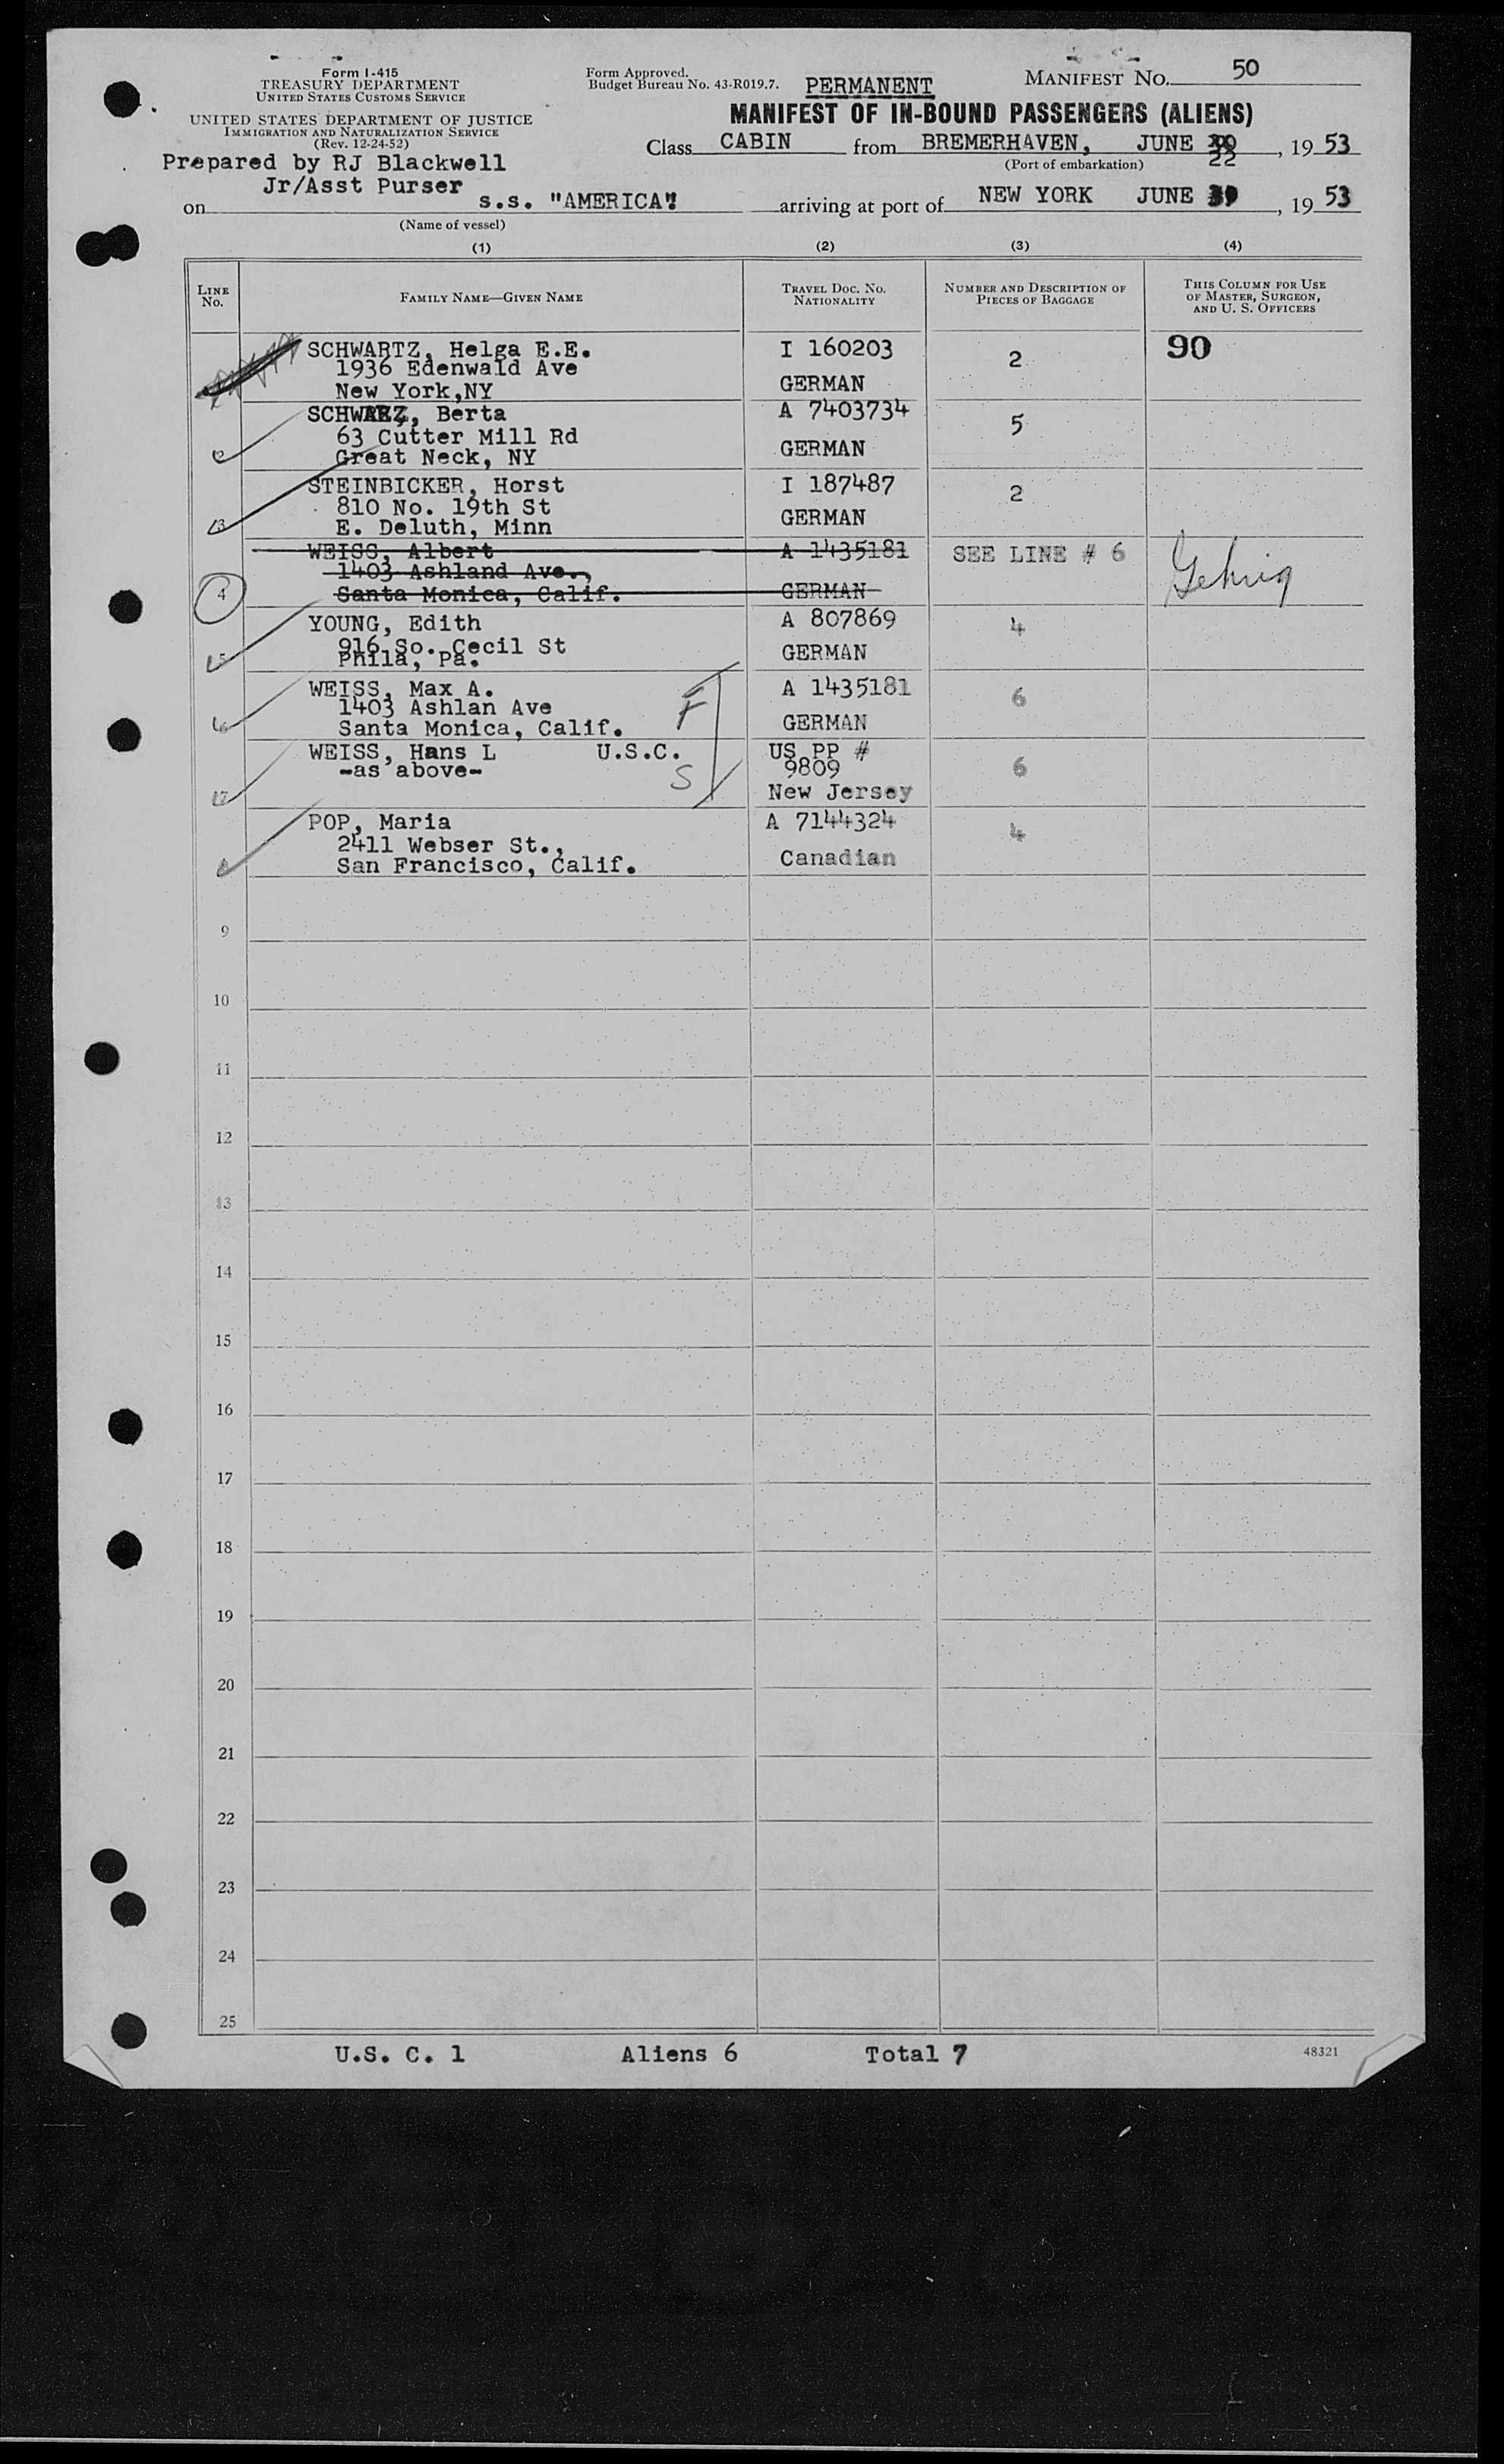 Form I-415
TREASURY DEPARTMENT
UNITED STATES CUSTOMS SERVICE
UNITED STATES DEPARTMENT OF JUSTICE
IMMIGRATION AND NATURALIZATION SERVICE
(Rev. 12-24-52)
Prepared by RJ Blackwell
Jr/Asst Purser
Form Approved.
Budget Bureau No. 43-R019.7.
PERMANENT
MANIFEST NO. 50
MANIFEST OF IN-BOUND PASSENGERS (ALIENS)
Class CABIN from BREMERHAVEN, JUNE 22, 1953
(Port of embarkation)
on s.s. "AMERICA" arriving at port of NEW YORK JUNE , 1953
(Name of vessel)
(1) (2) (3) (4)
LINE NO. FAMILY NAME—GIVEN NAME TRAVEL DOC. NO. NATIONALITY NUMBER AND DESCRIPTION OF PIECES OF BAGGAGE THIS COLUMN FOR USE OF MASTER, SURGEON, AND U. S. OFFICERS
SCHWARTZ, Helga E.E. I 160203 2 90
1936 Edenwald Ave
New York,NY GERMAN
2 SCHWARZ, Berta A 7403734 5
63 Cutter Mill Rd
Great Neck, NY GERMAN
3 STEINBICKER, Horst I 187487 2
810 No. 19th St
E. Deluth, Minn GERMAN
4 WEISS, Albert A 1435181 SEE LINE # 6 Gehrig
1403 Ashland Ave.,
Santa Monica, Calif. GERMAN
5 YOUNG, Edith A 807869 4
916 So. Cecil St
Phila, Pa. GERMAN
6 WEISS, Max A. A 1435181 6
1403 Ashlan Ave F
Santa Monica, Calif. GERMAN
7 WEISS, Hans L U.S.C. US PP # 6
-as above- S 9809
New Jersey
POP, Maria A 7144324 4
2411 Webser St.,
San Francisco, Calif. Canadian
9
10
11
12
13
14
15
16
17
18
19
20
21
22
23
24
25
U.S. C. 1 Aliens 6 Total 7
48321